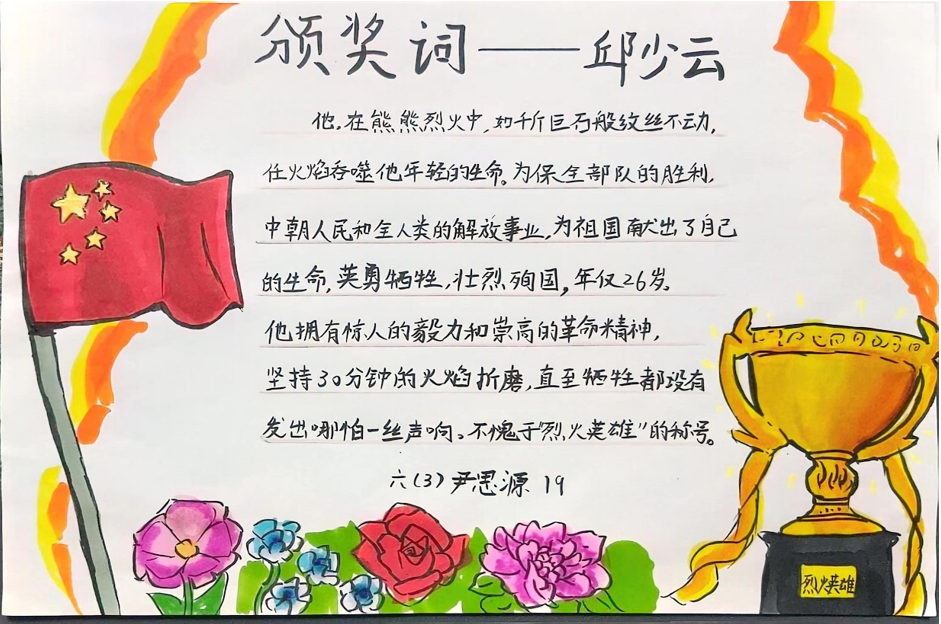 颁奖词——邱少云
他,在熊熊烈火中,如千斤巨石般纹丝不动,
任火焰吞噬他年轻的生命。为保全部队的胜利,
中朝人民和全人类的解放事业,为祖国献出了自己
的生命,英勇牺牲,壮烈殉国,年仅26岁。
他拥有惊人的毅力和崇高的革命精神,
坚持30分钟的火焰折磨,直至牺牲都没有
发出哪怕一丝声响。不愧于“烈火英雄”的称号。
六(3)尹思源 19
烈火英雄